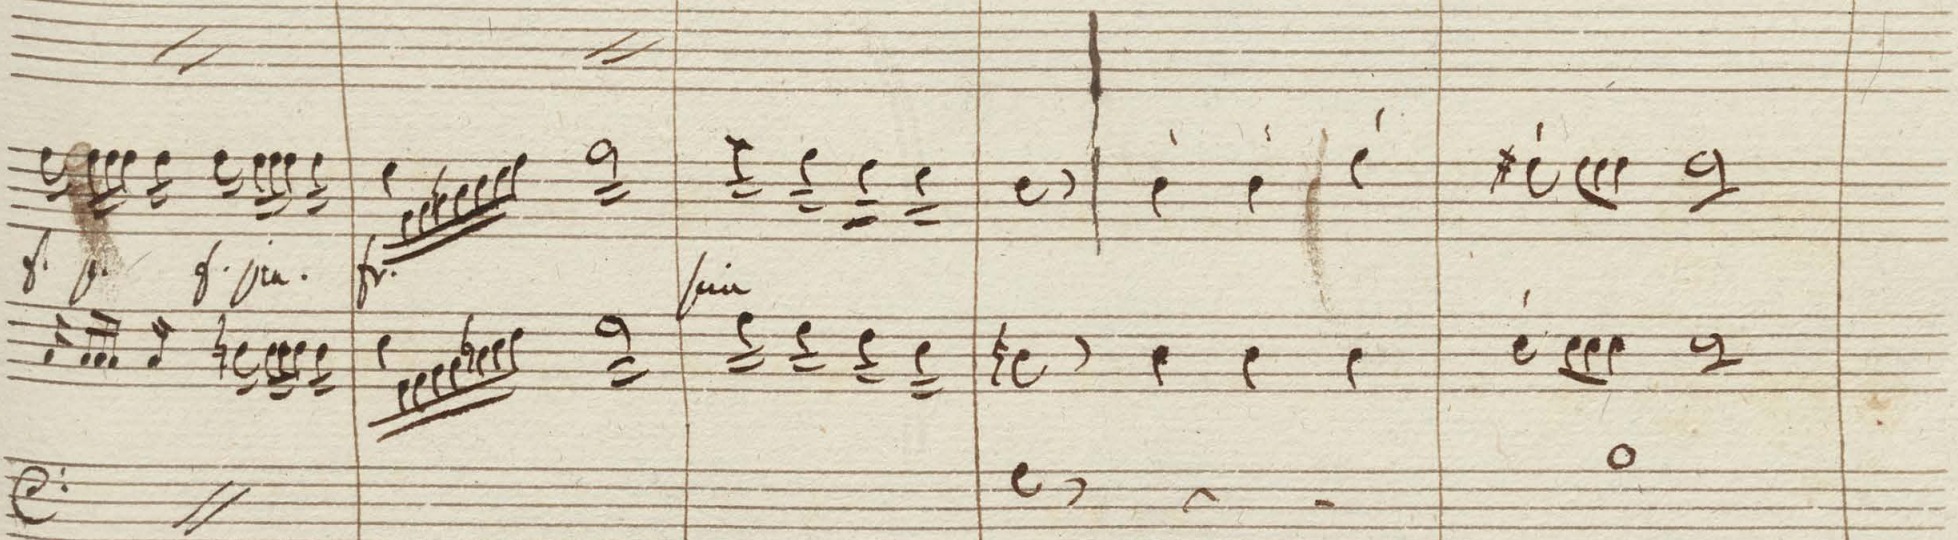 f. p. f. pia. fr. pia